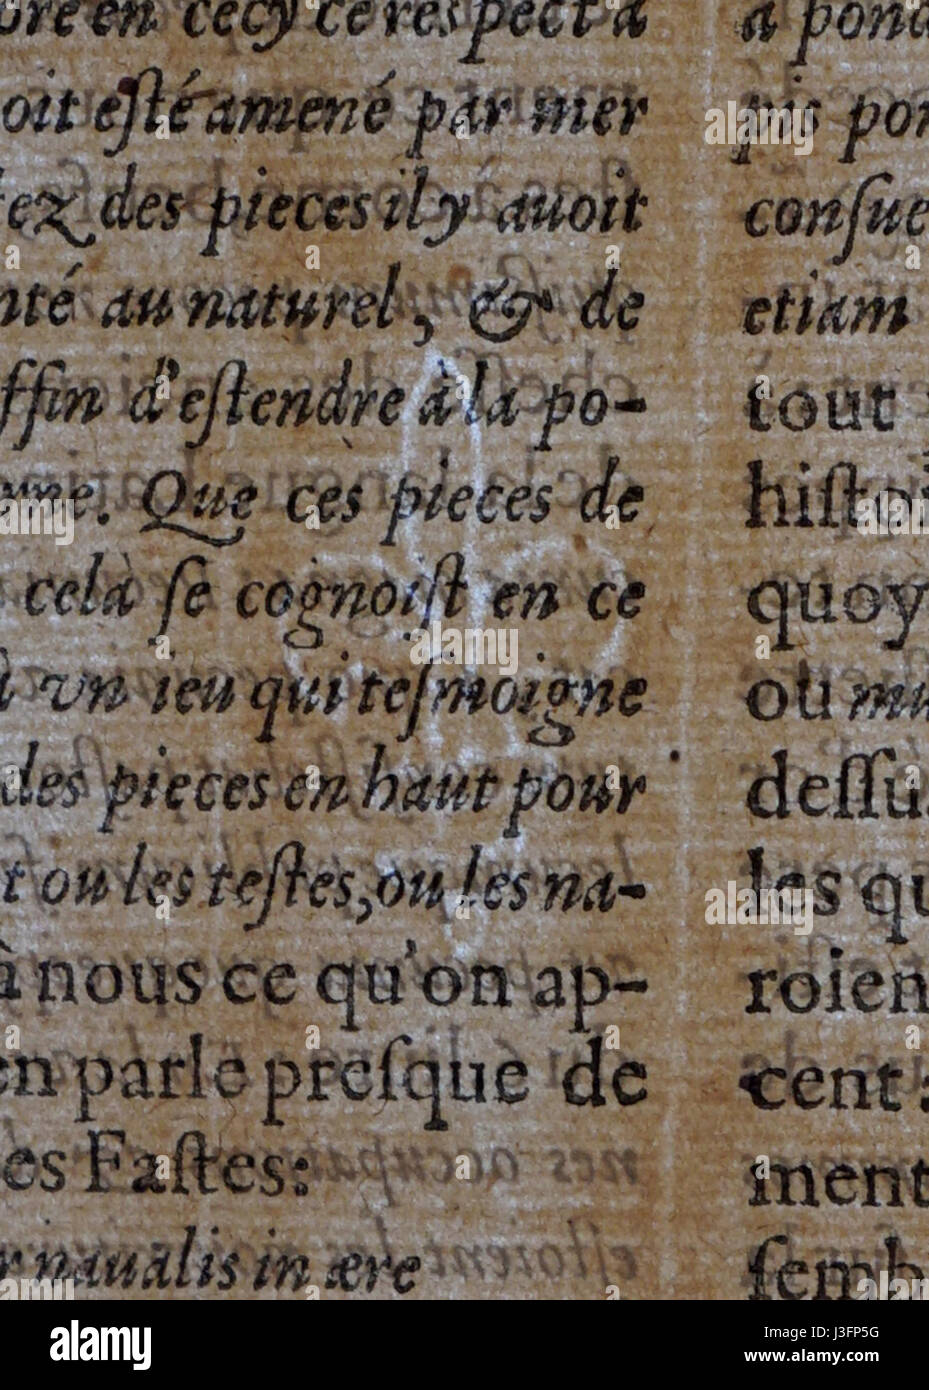 cecy ce respect à
oit eſté amené par mer
tez des pieces il y auoit
nté au naturel, & de
ffin d'eſtendre à la po-
me. Que ces pieces de
celà ſe cognoiſt en ce
vn ieu qui teſmoigne
des pieces en haut pour
t ou les teſtes, ou les na-
à nous ce qu'on ap-
en parle preſque de
es Faſtes:
r naualis in ære
a
pis
conſue
etiam
tout
hiſto
quoy
ou mu
deſſu
les qu
roien
cent :
ment
ſemb
alamy
Image ID: J3FP5G
www.alamy.com